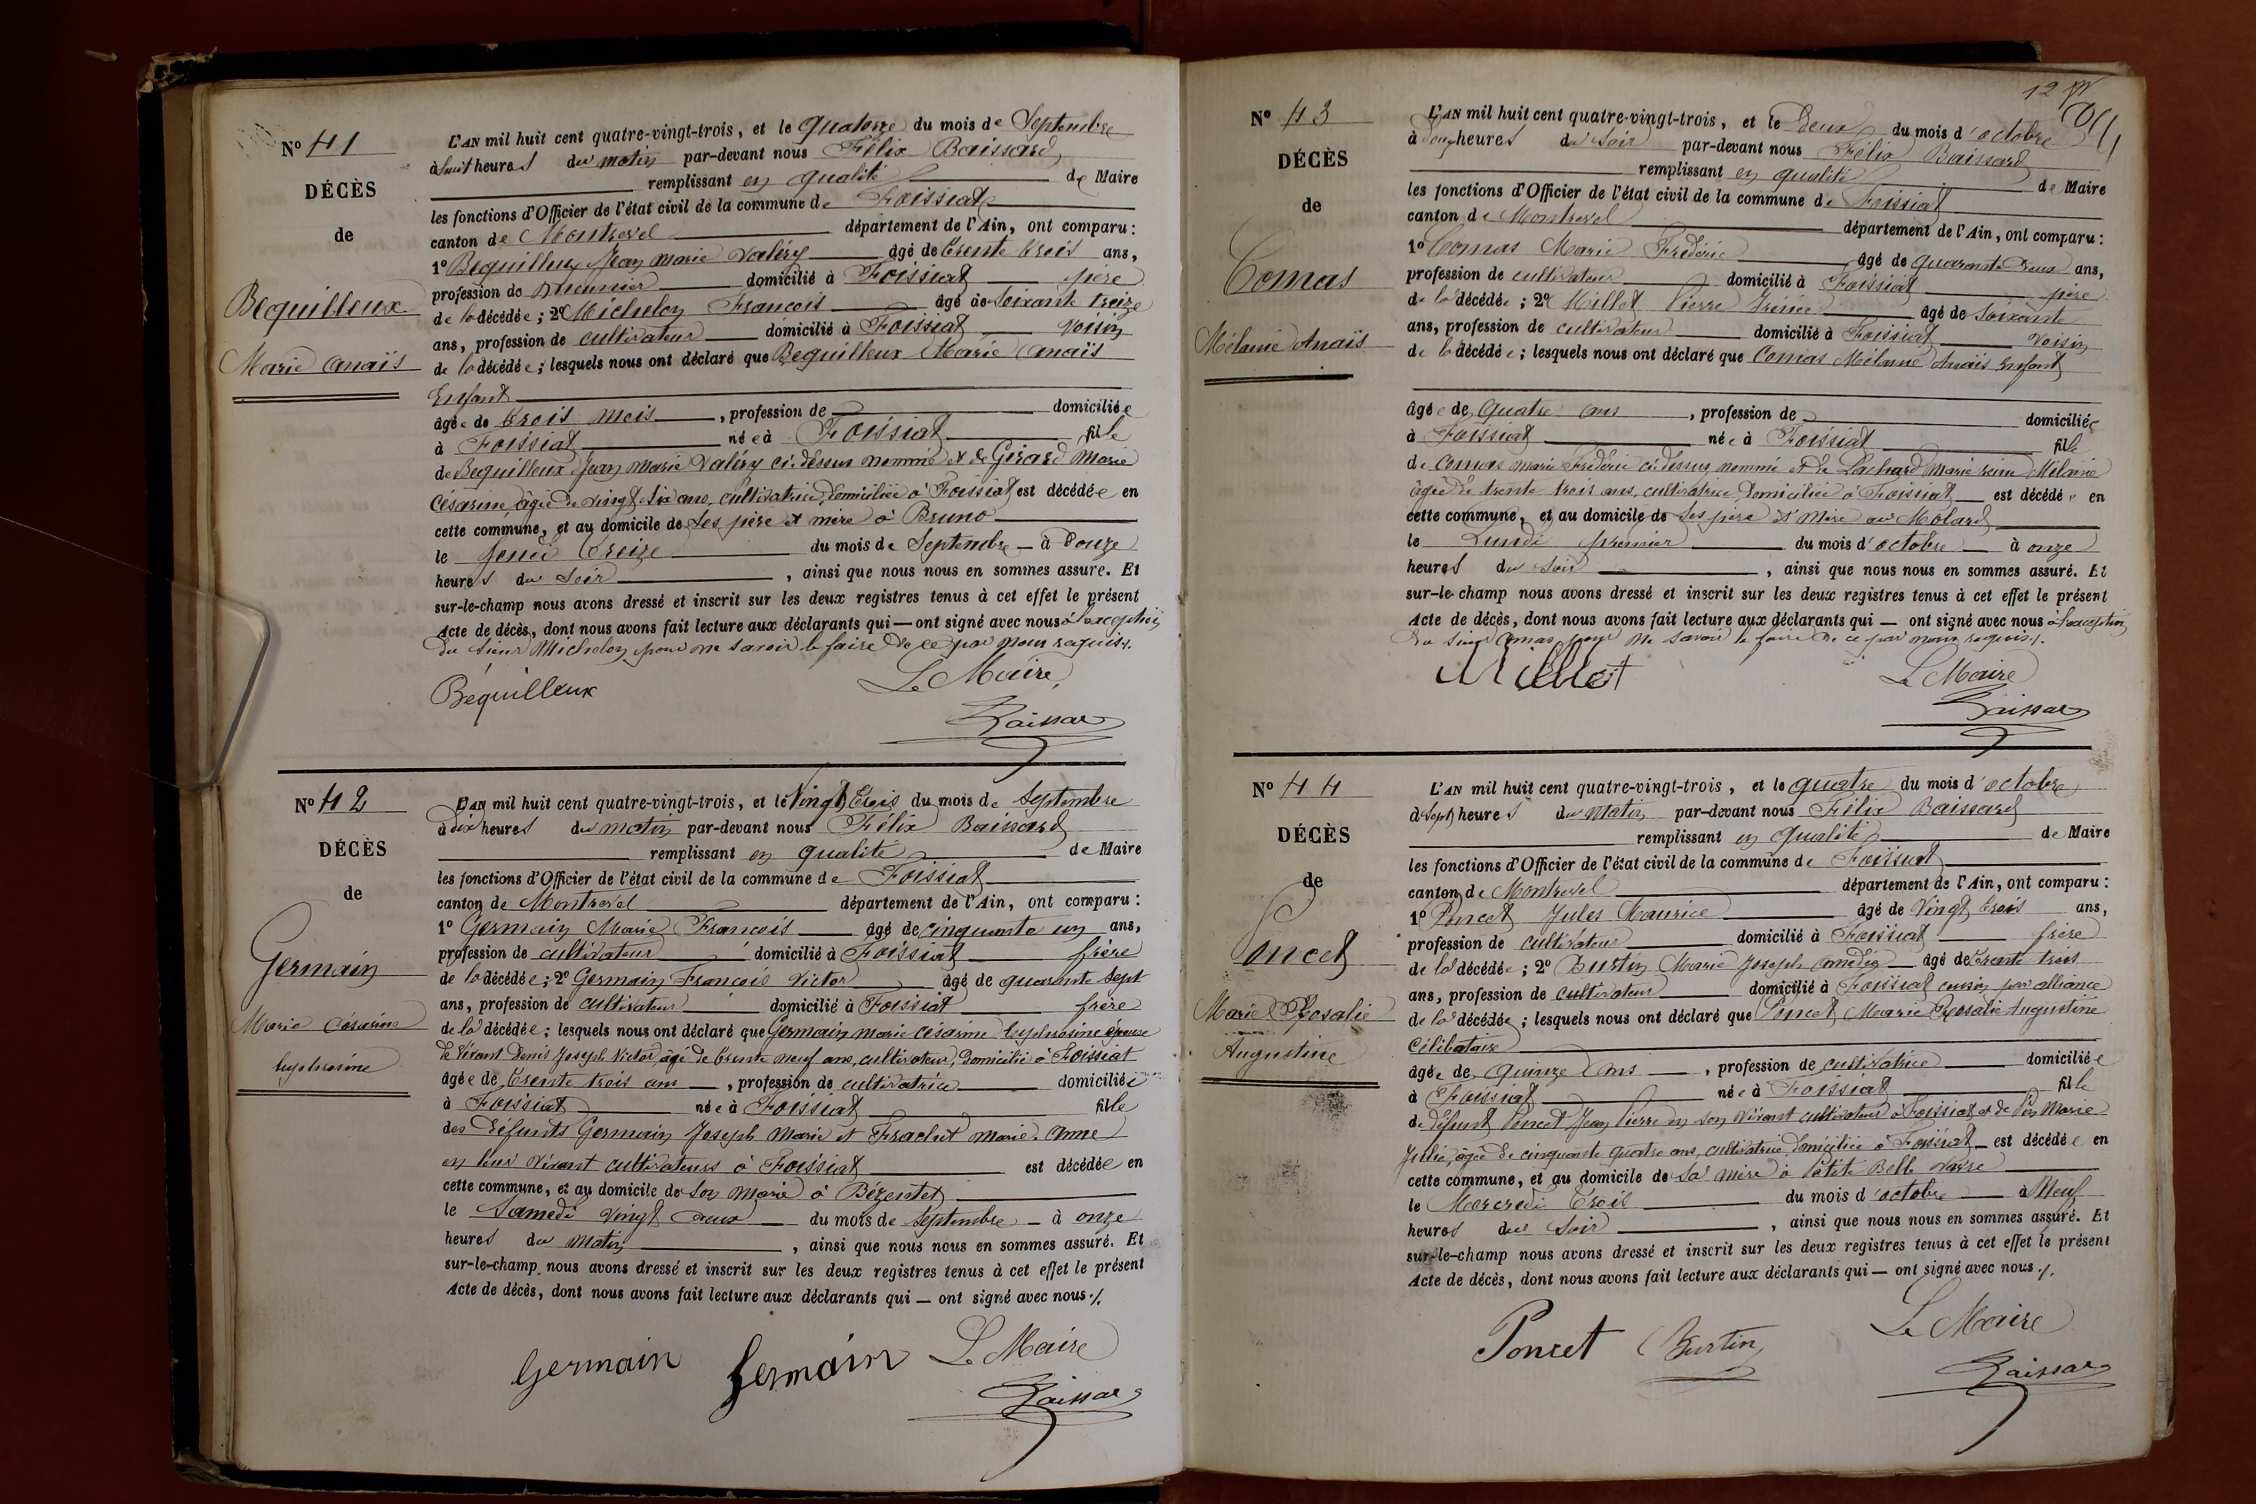 N° 41
DÉCÈS
de
Bequilleux
Marie Anaïs
L'AN mil huit cent quatre-vingt-trois, et le quatorze du mois de Septembre
à huit heures du matin par-devant nous Félix Baissard
remplissant en qualité de Maire
les fonctions d'Officier de l'état civil de la commune de Foissiat
canton de Montrevel département de l'Ain, ont comparu:
1° Bequilleux Jean Marie Valéry âgé de trente trois ans,
profession de meunier domicilié à Foissiat père
de la décédée; 2° Michelon François âgé de soixante treize
ans, profession de cultivateur domicilié à Foissiat voisin
de la décédée; lesquels nous ont déclaré que Bequilleux Marie Anaïs
Enfant
âgée de trois mois, profession de domiciliée
à Foissiat née à Foissiat fille
de Bequilleux Jean Marie Valéry ci-dessus nommé et de Girard Marie
Césarine, âgée de vingt six ans, cultivatrice, domiciliée à Foissiat est décédée en
cette commune, et au domicile de ses père et mère à Bruno
le jeudi treize du mois de Septembre à Douze
heures du soir, ainsi que nous nous en sommes assuré. Et
sur-le-champ nous avons dressé et inscrit sur les deux registres tenus à cet effet le présent
Acte de décès, dont nous avons fait lecture aux déclarants qui — ont signé avec nous à l'exception
du sieur Michelon pour ne savoir le faire de ce par nous requis.
Béquilleux Le Maire
Baissard
N° 42
DÉCÈS
de
Germain
Marie Césarine
Euphrosine
L'AN mil huit cent quatre-vingt-trois, et le vingt trois du mois de Septembre
à dix heures du matin par-devant nous Félix Baissard
remplissant en qualité de Maire
les fonctions d'Officier de l'état civil de la commune de Foissiat
canton de Montrevel département de l'Ain, ont comparu:
1° Germain Marie François âgé de cinquante un ans,
profession de cultivateur domicilié à Foissiat frère
de la décédée; 2° Germain François Victor âgé de quarante sept
ans, profession de cultivateur domicilié à Foissiat frère
de la décédée; lesquels nous ont déclaré que Germain Marie Césarine Euphrosine épouse
de Vivant Denis Joseph Victor, âgé de trente neuf ans, cultivateur, domicilié à Foissiat
âgée de trente trois ans, profession de cultivatrice domiciliée
à Foissiat née à Foissiat fille
des défunts Germain Joseph Marie et Frachet Marie Anne
en leur vivant cultivateurs à Foissiat est décédée en
cette commune, et au domicile de son marie à Bézentet
le Samedi vingt deux du mois de Septembre à onze
heures du matin, ainsi que nous nous en sommes assuré. Et
sur-le-champ nous avons dressé et inscrit sur les deux registres tenus à cet effet le présent
Acte de décès, dont nous avons fait lecture aux déclarants qui — ont signé avec nous.
Germain Germain Le Maire
Baissard
12
N° 43
DÉCÈS
de
Comas
Mélanie Anaïs
L'AN mil huit cent quatre-vingt-trois, et le Deux du mois d'octobre
à heures du soir par-devant nous Félix Baissard
remplissant en qualité de Maire
les fonctions d'Officier de l'état civil de la commune de Foissiat
canton de Montrevel département de l'Ain, ont comparu:
1° Comas Marie Frédéric âgé de quarante deux ans,
profession de cultivateur domicilié à Foissiat père
de la décédée; 2° Millet Pierre Irénée âgé de soixante
ans, profession de cultivateur domicilié à Foissiat voisin
de la décédée; lesquels nous ont déclaré que Comas Mélanie Anaïs Enfant
âgée de quatre ans, profession de domiciliée
à Foissiat née à Foissiat fille
de Comas Marie Frédéric ci-dessus nommé et de Lachard Marie Reine Mélanie
âgée de trente trois ans, cultivatrice, domiciliée à Foissiat est décédée en
cette commune, et au domicile de ses père et mère au Molard
le Lundi premier du mois d'octobre à onze
heures du soir, ainsi que nous nous en sommes assuré. Et
sur-le-champ nous avons dressé et inscrit sur les deux registres tenus à cet effet le présent
Acte de décès, dont nous avons fait lecture aux déclarants qui — ont signé avec nous à l'exception
du sieur Comas pour ne savoir le faire de ce par nous requis.
Millet Le Maire
Baissard
N° 44
DÉCÈS
de
Poncet
Marie Rosalie
Augustine
L'AN mil huit cent quatre-vingt-trois, et le quatre du mois d'octobre
à sept heures du matin par-devant nous Félix Baissard
remplissant en qualité de Maire
les fonctions d'Officier de l'état civil de la commune de Foissiat
canton de Montrevel département de l'Ain, ont comparu:
1° Poncet Jules Maurice âgé de vingt trois ans,
profession de cultivateur domicilié à Foissiat frère
de la décédée; 2° Burtin Marie Joseph Amédée âgé de trente trois
ans, profession de cultivateur domicilié à Foissiat cousin par alliance
de la décédée; lesquels nous ont déclaré que Poncet Marie Rosalie Augustine
Célibataire
âgée de quinze ans, profession de cultivatrice domiciliée
à Foissiat née à Foissiat fille
de défunt Poncet Jean Pierre en son vivant cultivateur à Foissiat et de Marie
Julie, âgée de cinquante quatre ans, cultivatrice, domiciliée à Foissiat est décédée en
cette commune, et au domicile de sa mère à Petite Belle Vavre
le Mercredi trois du mois d'octobre à neuf
heures du soir, ainsi que nous nous en sommes assuré. Et
sur-le-champ nous avons dressé et inscrit sur les deux registres tenus à cet effet le présent
Acte de décès, dont nous avons fait lecture aux déclarants qui — ont signé avec nous.
Poncet Burtin Le Maire
Baissard